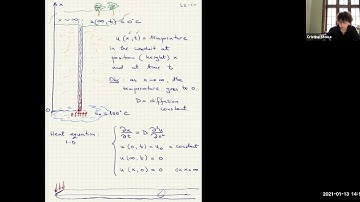 x
x → ∞
u(∞,t) = 0°C
u(x,t) = temperature
in the conduit at
position (height) x
and at time t
Obs: as x→∞, the
temperature goes to 0.
D = diffusion
constant
0
u₀ = 100°C
Heat equation:
1-D
∂u/∂t = D ∂²u/∂x²
u(0,t) = u₀ = constant
u(∞,t) = 0
u(x,0) = 0 0<x<∞
2021-01-13 14:5